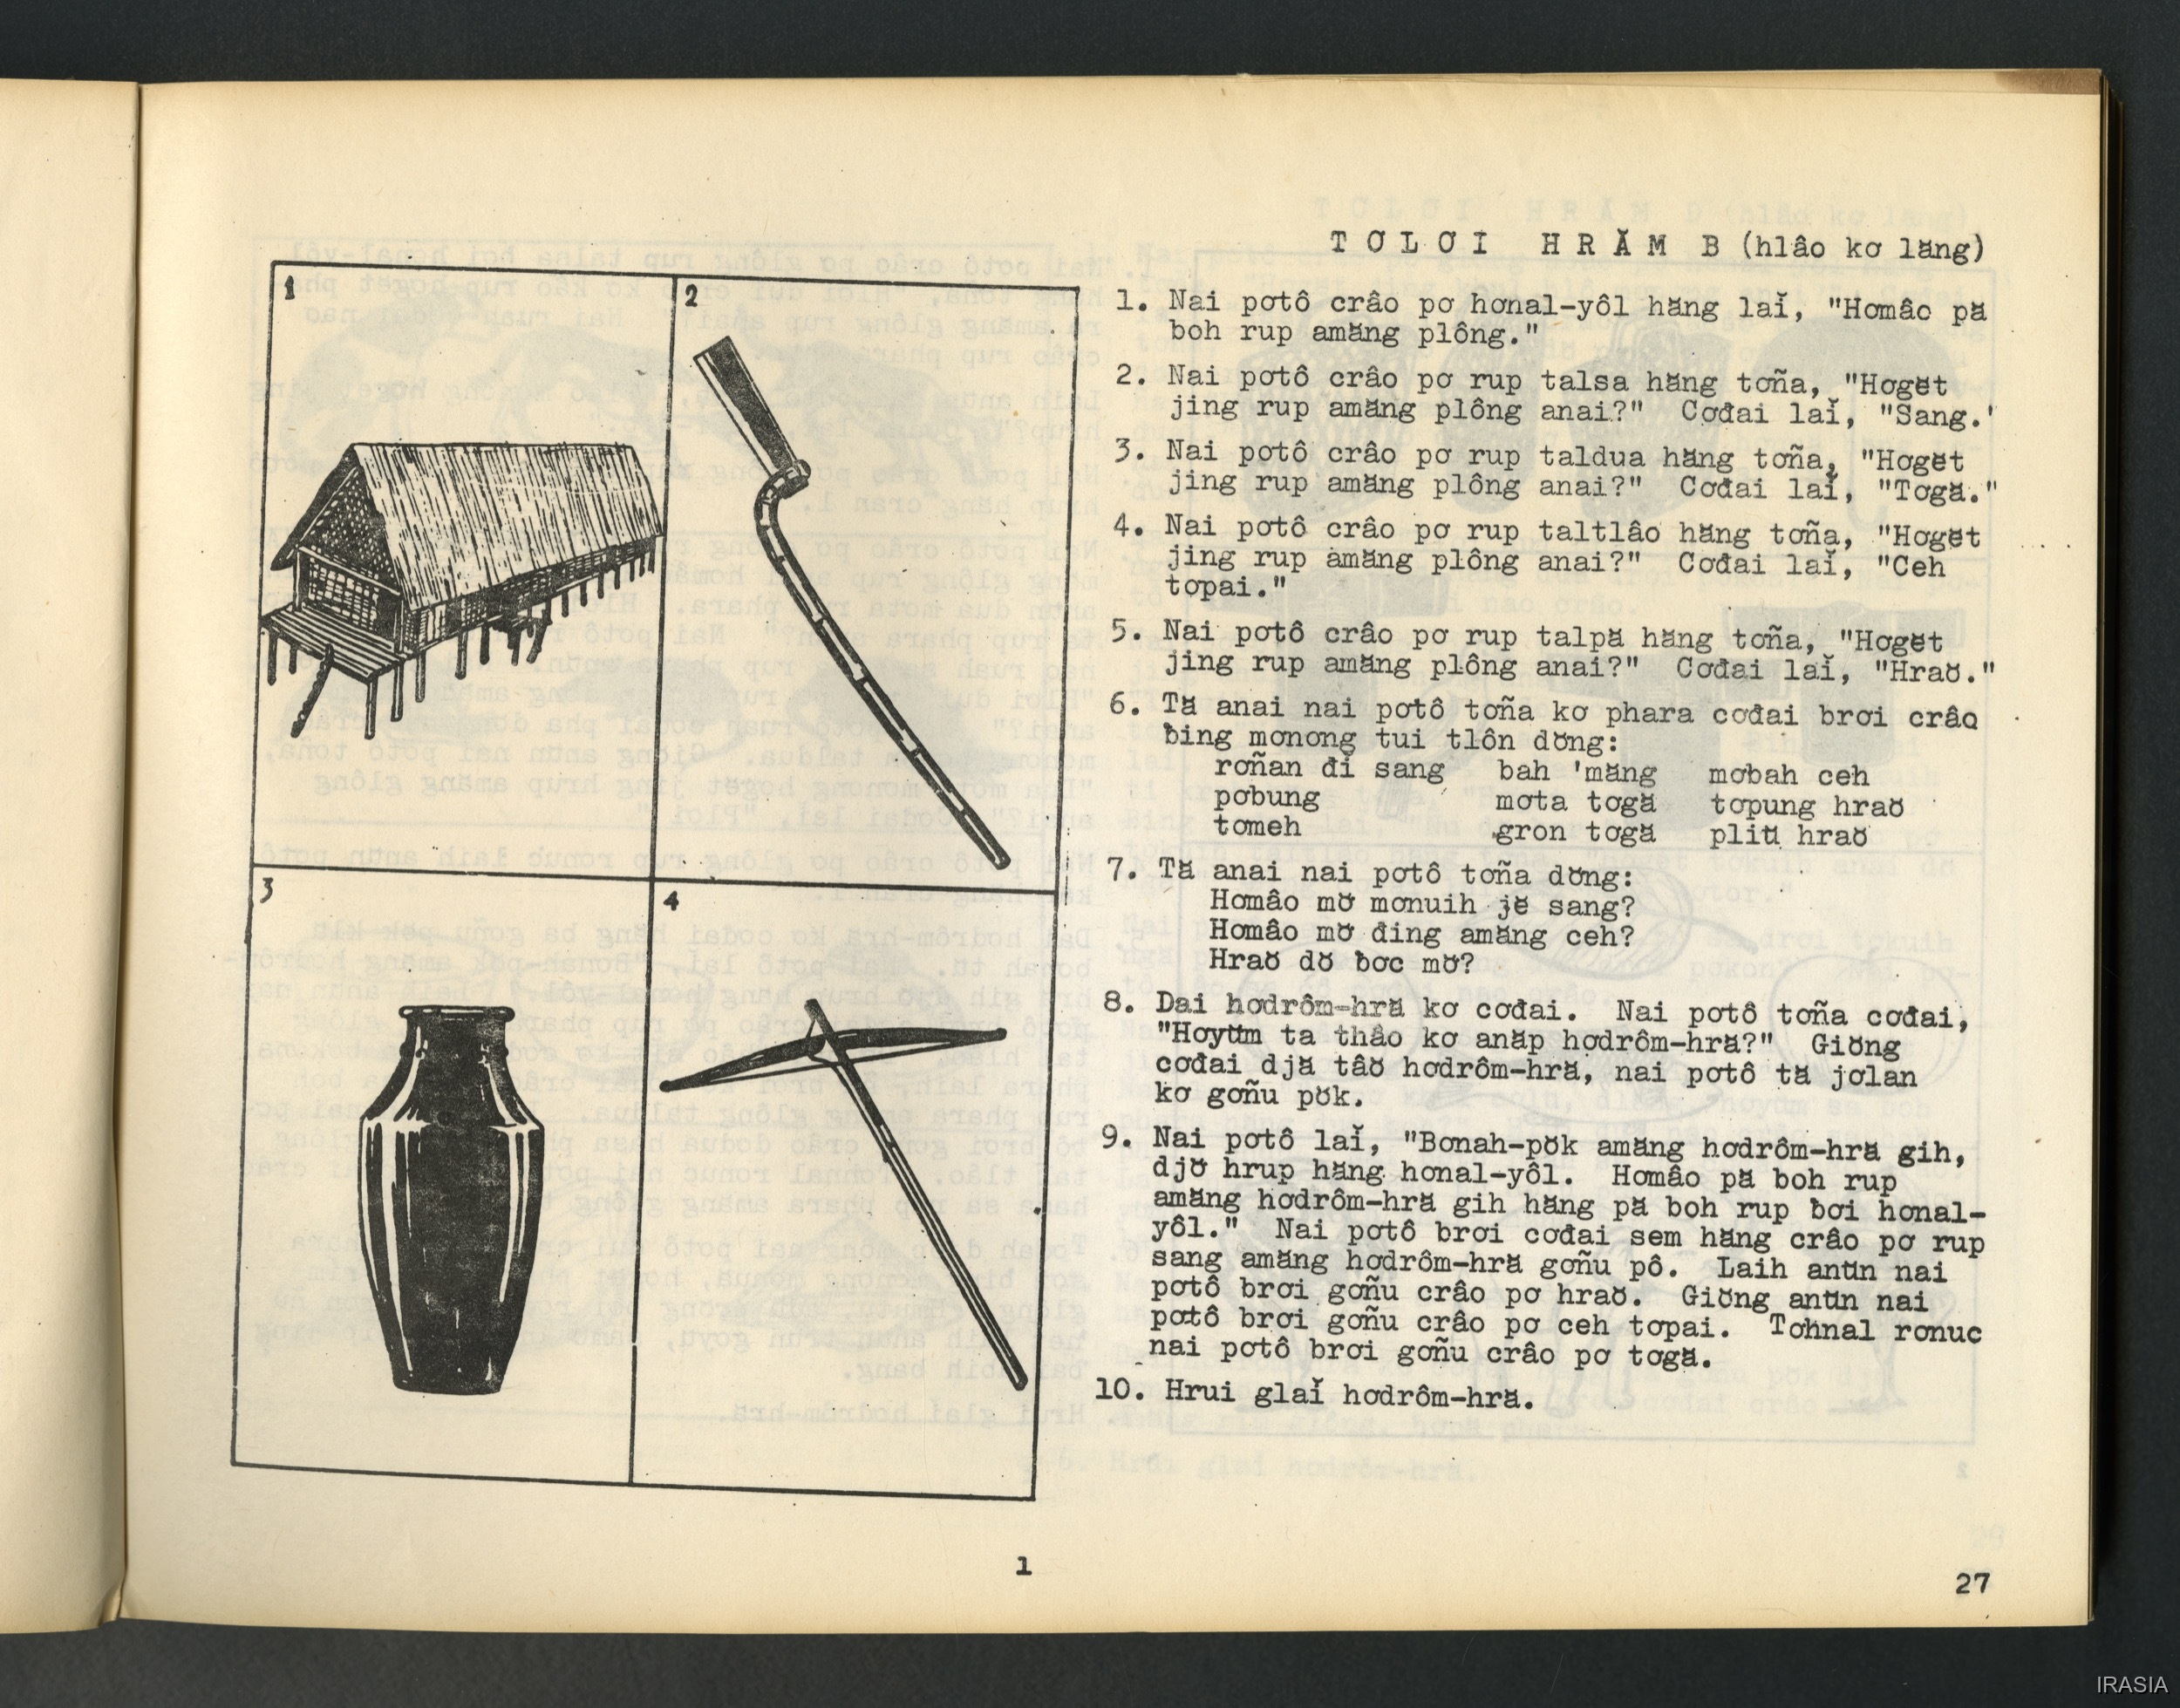 1
2
3
4
1
T Ơ L Ơ I   H R Ă M   B (hlâo kơ lăng)
1. Nai pơtô crâo pơ hơnal-yôl hăng laĭ, "Hơmâo pă
boh rup amăng plông."
2. Nai pơtô crâo pơ rup talsa hăng tơña, "Hơgĕt
jing rup amăng plông anai?" Cơđai laĭ, "Sang.'
3. Nai pơtô crâo pơ rup taldua hăng tơña, "Hơgĕt
jing rup amăng plông anai?" Cơđai laĭ, "Tơgă."
4. Nai pơtô crâo pơ rup taltlâo hăng tơña, "Hơgĕt
jing rup amăng plông anai?" Cơđai laĭ, "Ceh
tơpai."
5. Nai pơtô crâo pơ rup talpă hăng tơña, "Hơgĕt
jing rup amăng plông anai?" Cơđai laĭ, "Hraŏ."
6. Tă anai nai pơtô tơña kơ phara cơđai brơi crâo
ƀing mơnong tui tlôn dŏng:
rơñan đĭ sang   bah 'măng   mơbah ceh
pơbung   mơta tơgă   tơpung hraŏ
tơmeh   grơn tơgă   pliŭ hraŏ
7. Tă anai nai pơtô tơña dŏng:
Hơmâo mơ̆ mơnuih jĕ sang?
Hơmâo mơ̆ đing amăng ceh?
Hraŏ dŏ ƀơc mơ̆?
8. Dai hơdrôm-hră kơ cơđai. Nai pơtô tơña cơđai,
"Hơyŭm ta thâo kơ anăp hơdrôm-hră?" Giŏng
cơđai djă tâŏ hơdrôm-hră, nai pơtô tă jơlan
kơ gơñu pŏk.
9. Nai pơtô laĭ, "Bơnah-pŏk amăng hơdrôm-hră gih,
djơ̆ hrup hăng hơnal-yôl. Hơmâo pă boh rup
amăng hơdrôm-hră gih hăng pă boh rup ƀơi hơnal-
yôl." Nai pơtô brơi cơđai sem hăng crâo pơ rup
sang amăng hơdrôm-hră gơñu pô. Laih anŭn nai
pơtô brơi gơñu crâo pơ hraŏ. Giŏng anŭn nai
pơtô brơi gơñu crâo pơ ceh tơpai. Tơhnal rơnuc
nai pơtô brơi gơñu crâo pơ tơgă.
10. Hrui glaĭ hơdrôm-hră.
27
IRASIA